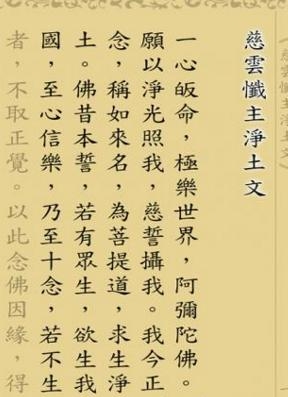 慈雲懺主淨土文
一心皈命，極樂世界，阿彌陀佛。
願以淨光照我，慈誓攝我。我今正
念，稱如來名，為菩提道，求生淨
土。佛昔本誓，若有眾生，欲生我
國，至心信樂，乃至十念，若不生
者，不取正覺。以此念佛因緣，得